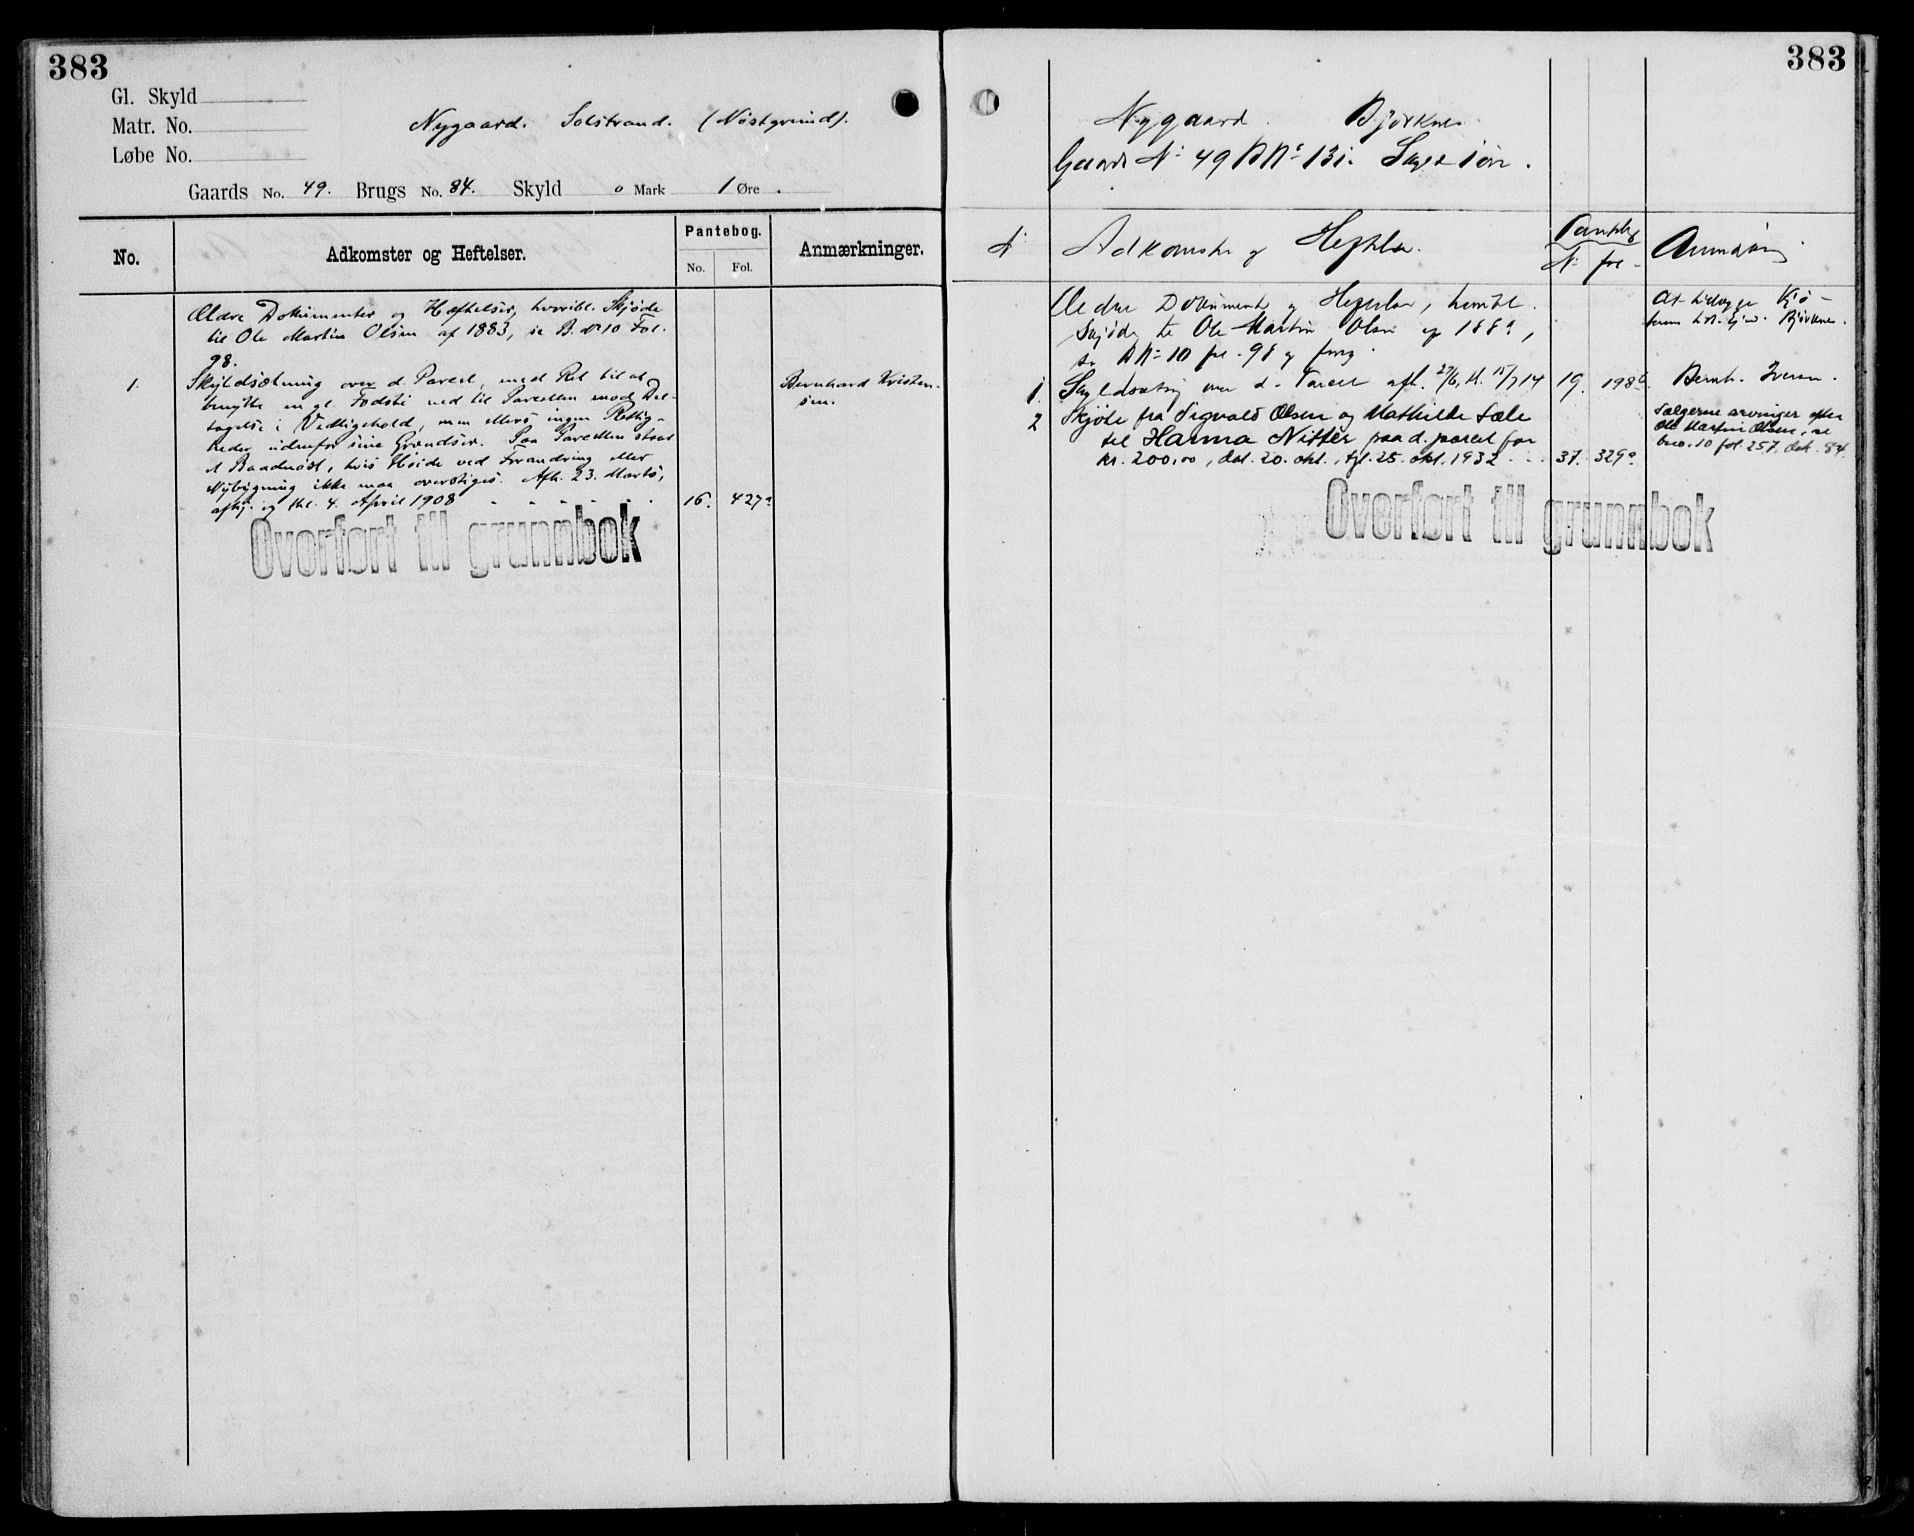 383
Gl. Skyld
Matr. No.
Løbe No.
Nygaard. Solstrand. (Nöstgrund).
Gaards No. 49. Brugs No. 84. Skyld 0 Mark 1 Øre.
No.
Adkomster og Heftelser.
Pantebog.
No. Fol.
Anmærkninger.
Ældre Dokumenter og Hæftelser, hvoribl. Skjöde
til Ole Martin Olsen af 1883, se B. No 10 Fol.
98.
1. Skyldsætning over d. Parcel, med Ret til at
benytte en gl. Fodsti ned til Parcellen mod Del-
tagelse i Vedligehold, men ellers ingen Rettig-
heder udenfor sine Grændser. Paa Parcellen staar
et Baadnöst, hvis Höide ved Forandring eller
Nybygning ikke maa overstiges. Afh. 23. Marts,
afhj. og thl. 4. April 1908 16. 427a
Bernhard Kristen-
sen.
Overført til grunnbok
383
Nygaard. Björknes
Gaards No 49 BNo 131. 1 öre.
No Adkomster og Heftelser.
No fol.
Ældre Dokumenter og Heftelser,
Skjöde til Ole Martin Olsen af 188,
se BNo 10 fol. 98 og
1. Skyldsætning over d. Parcel afh. 27/6, tl. 15/7 14 19. 198b
Bernh. Iversen.
2 Skjöte fra Sigvald Olsen og Mathilde Sæle
til Hanna Nitter paa d. parcel for
kr. 200.00, dat. 20. okt., tgl. 25. okt. 1932 37. 329a
Sælgerne arvinger efter
Ole Martin Olsen, se
bno. 10 fol. 257, dok. 84.
Overført til grunnbok